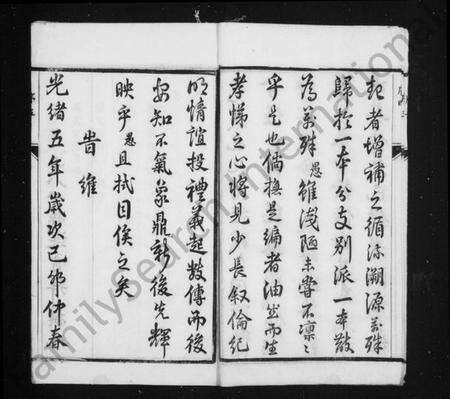 起者增補之循流溯源萬殊
歸於一本分支別派一本散
為萬殊愚雖淺陋未嘗不凜凜
乎是也倘撫是編者油然而生
孝悌之心將見少長叙倫紀
明情誼投禮義起數傳而後
安知不氣象鼎新後先輝
映乎愚且拭目俟之矣
旹維
光緒五年歲次己卯仲春
FamilySearch International